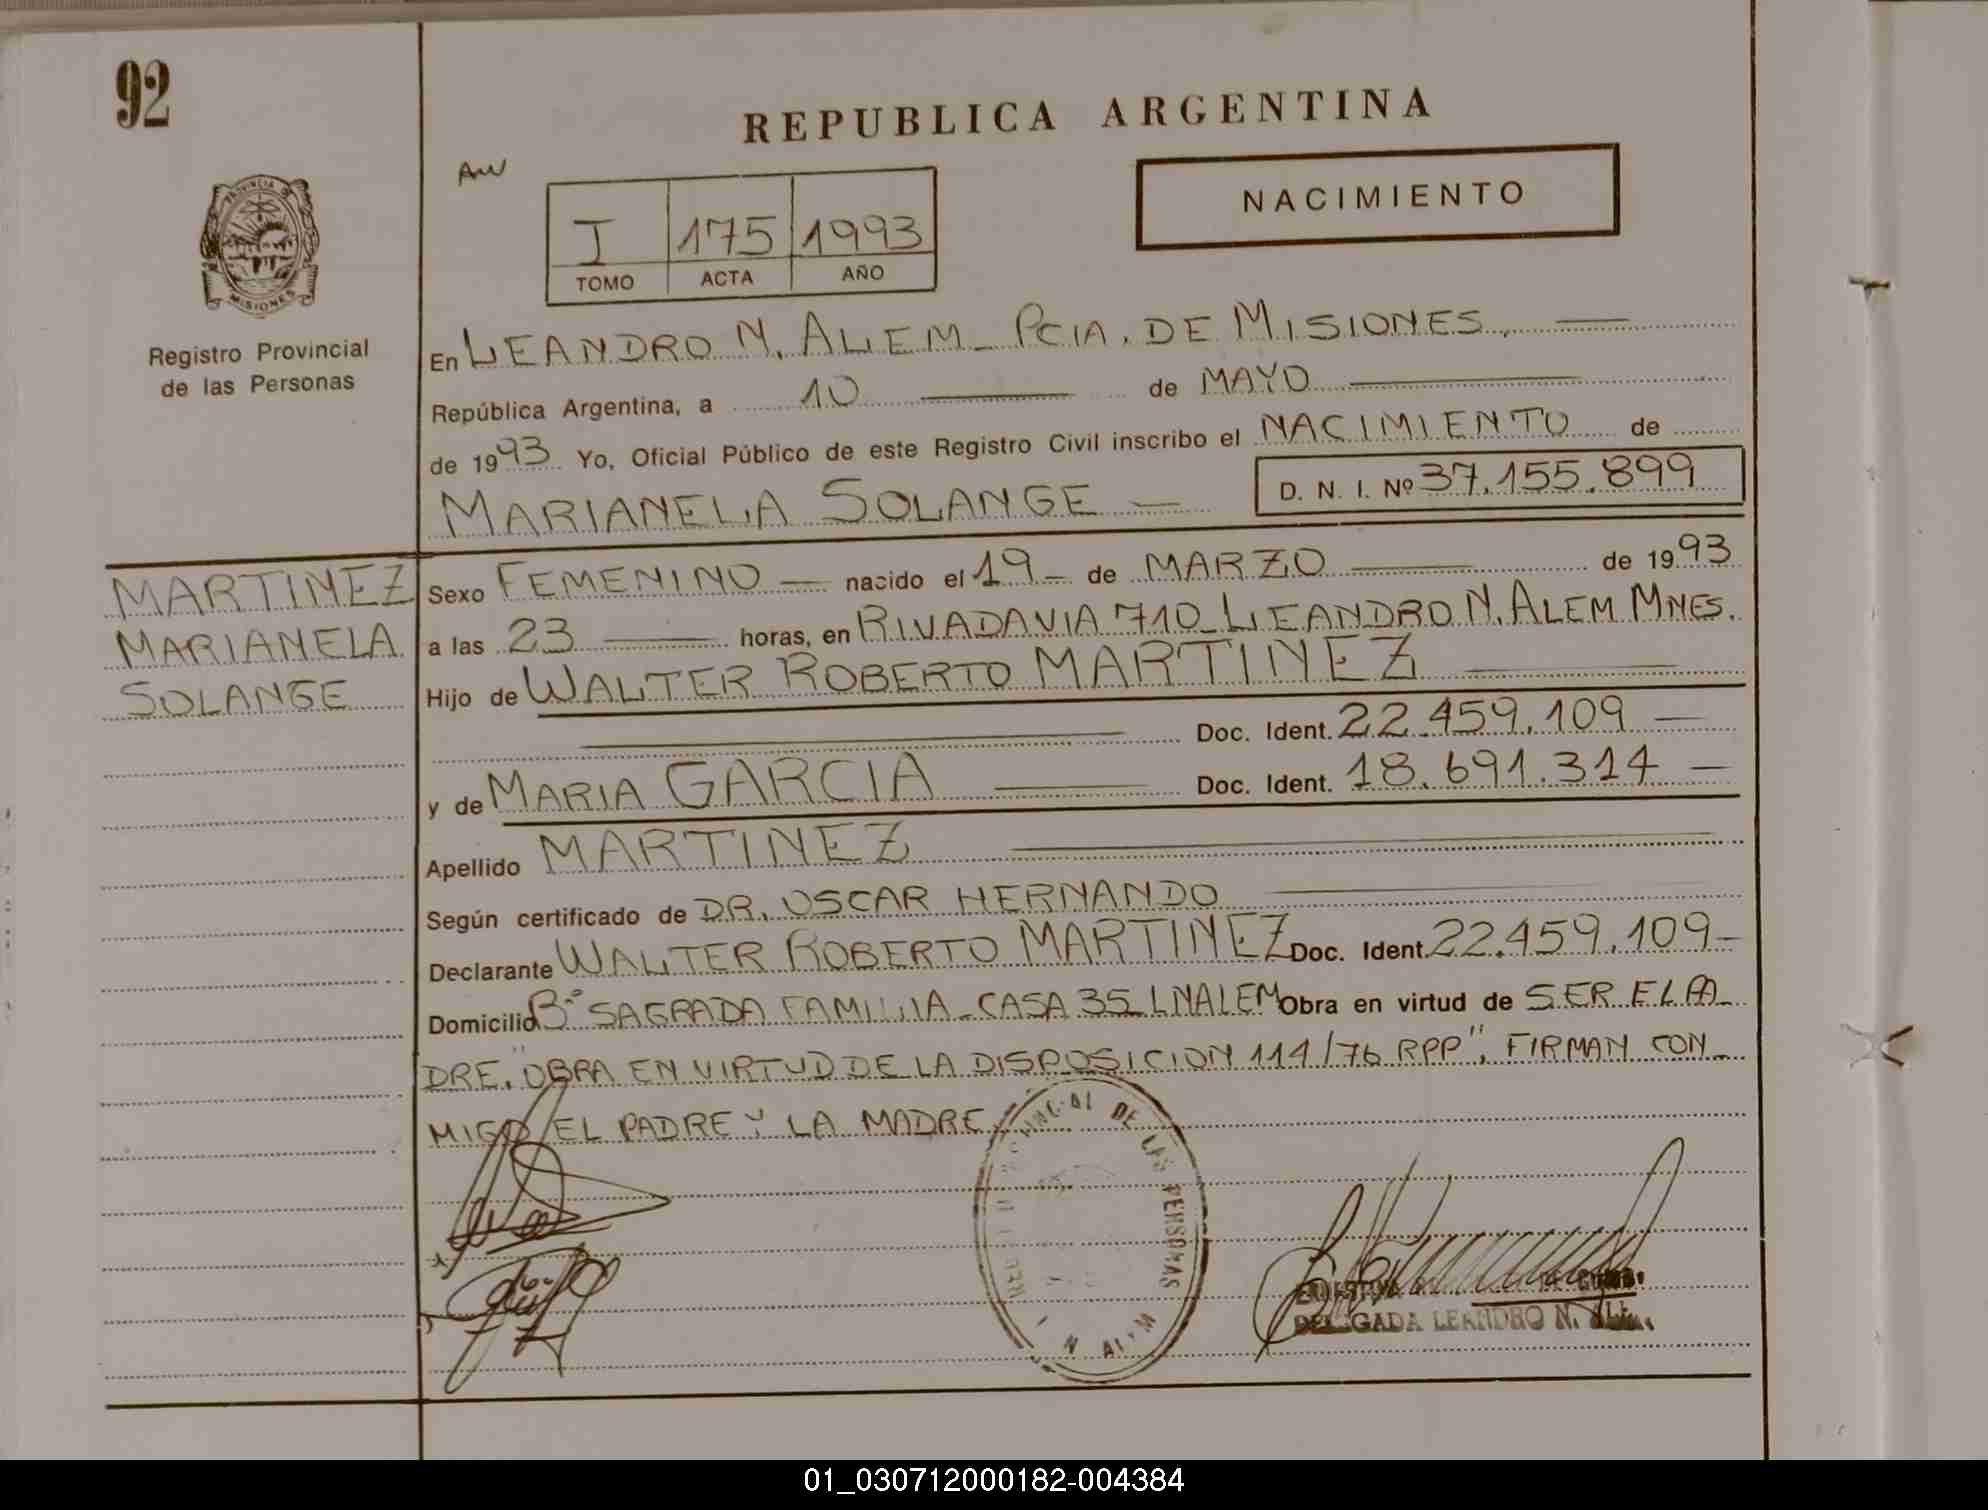 92
REPUBLICA ARGENTINA
I 175 1993
TOMO ACTA AÑO
NACIMIENTO
PROVINCIA DE MISIONES
Registro Provincial
de las Personas
En LEANDRO N. ALEM - PCIA. DE MISIONES,
República Argentina, a 10 de MAYO
de 1993 Yo, Oficial Público de este Registro Civil inscribo el NACIMIENTO de
MARIANELA SOLANGE D. N. I. Nº 37.155.899
MARTINEZ
MARIANELA
SOLANGE
Sexo FEMENINO nacido el 19 - de MARZO de 1993
a las 23 horas, en RIVADAVIA 710 - LEANDRO N. ALEM MNES.
Hijo de WALTER ROBERTO MARTINEZ
Doc. Ident. 22.459.109
y de MARIA GARCIA Doc. Ident. 18.691.314
Apellido MARTINEZ
Según certificado de DR. OSCAR HERNANDO
Declarante WALTER ROBERTO MARTINEZ Doc. Ident. 22.459.109
Domicilio Bº SAGRADA FAMILIA - CASA 35 LNALEM Obra en virtud de SER EL
DRE. "OBRA EN VIRTUD DE LA DISPOSICION 114/76 RPP", FIRMAN CON-
MIGO EL PADRE Y LA MADRE
DE LAS PERSONAS
DELEGADA LEANDRO N.
01_030712000182-004384